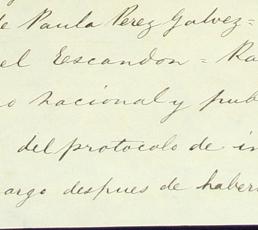 de Paula Perez Galvez=
el Escandon = Ra
o nacional y pub
del protocolo de in
argo despues de haber